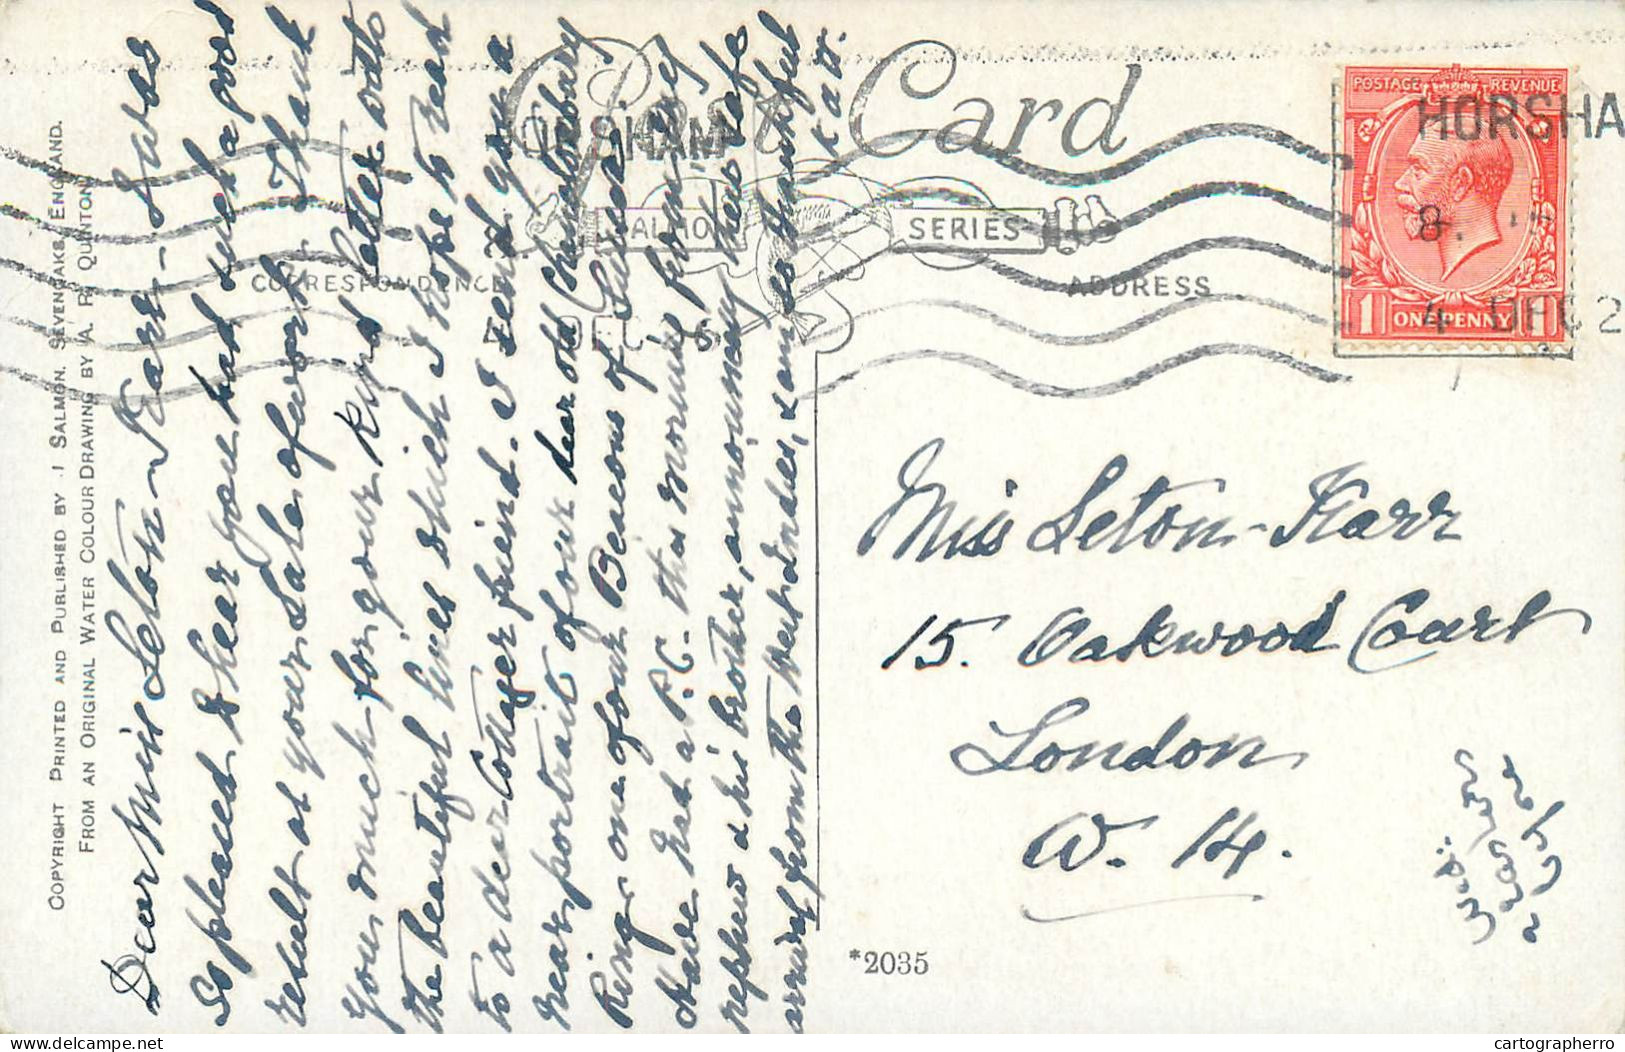 COPYRIGHT PRINTED AND PUBLISHED BY J SALMON, SEVENOAKS, ENGLAND.
FROM AN ORIGINAL WATER COLOUR DRAWING BY A. R. QUINTON
Post Card
SALMON SERIES
CORRESPONDENCE
ADDRESS
POSTAGE REVENUE
ONE PENNY
HORSHA
4 DEC 2
Dear Miss Seton-Karr. I was
so pleased to hear you had such a good
result at your Sale of work. Thank
you much for your kind letter with
the beautiful lines which I hope to read
to a dear Cottager friend. I send you a
near portrait of our dear old Chanctonbury
Ring one of our Beacons of Sussex.
Have had a P.C. this morning from my
nephew & his brother, announcing their safe
arrival from the West Indies, & am so thankful
Miss Seton-Karr
15. Oakwood Court
London
W. 14.
*2035
cartographerro
delcampe.net